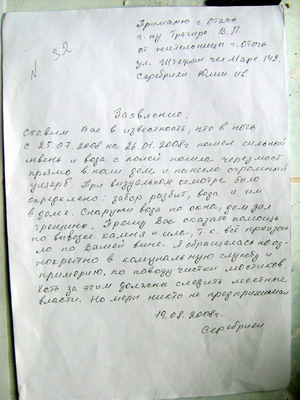 N 52
Примарю г. Отачь
г-ну Трачире В.П
от жительницы г. Отачь
ул. Штефан чел Маре 142.
Серебрян Юлии Ив.
Заявление.
Ставлю Вас в известность, что в ночь
с 25.07.2008 на 26.07.2008г. пошел сильный
ливень и вода с полей пошла через мост
прямо в наш дом и нанесло огромный
ущерб. При визуальном осмотре было
определено: забор разбит, вода и ил
в доме. Снаружи вода по окна, дом дал
трещину. Прошу Вас оказать помощь
по вывозке камня и ила, т.к. всё произош
ло по Вашей вине. Я обращалась неод-
нократно в комунальную службу и
примэрию, по поводу чистки мостиков.
Хоть за этим должны следить местные
власти. Но меры никто не предпринимал
19.08.2008г.
Серебрян